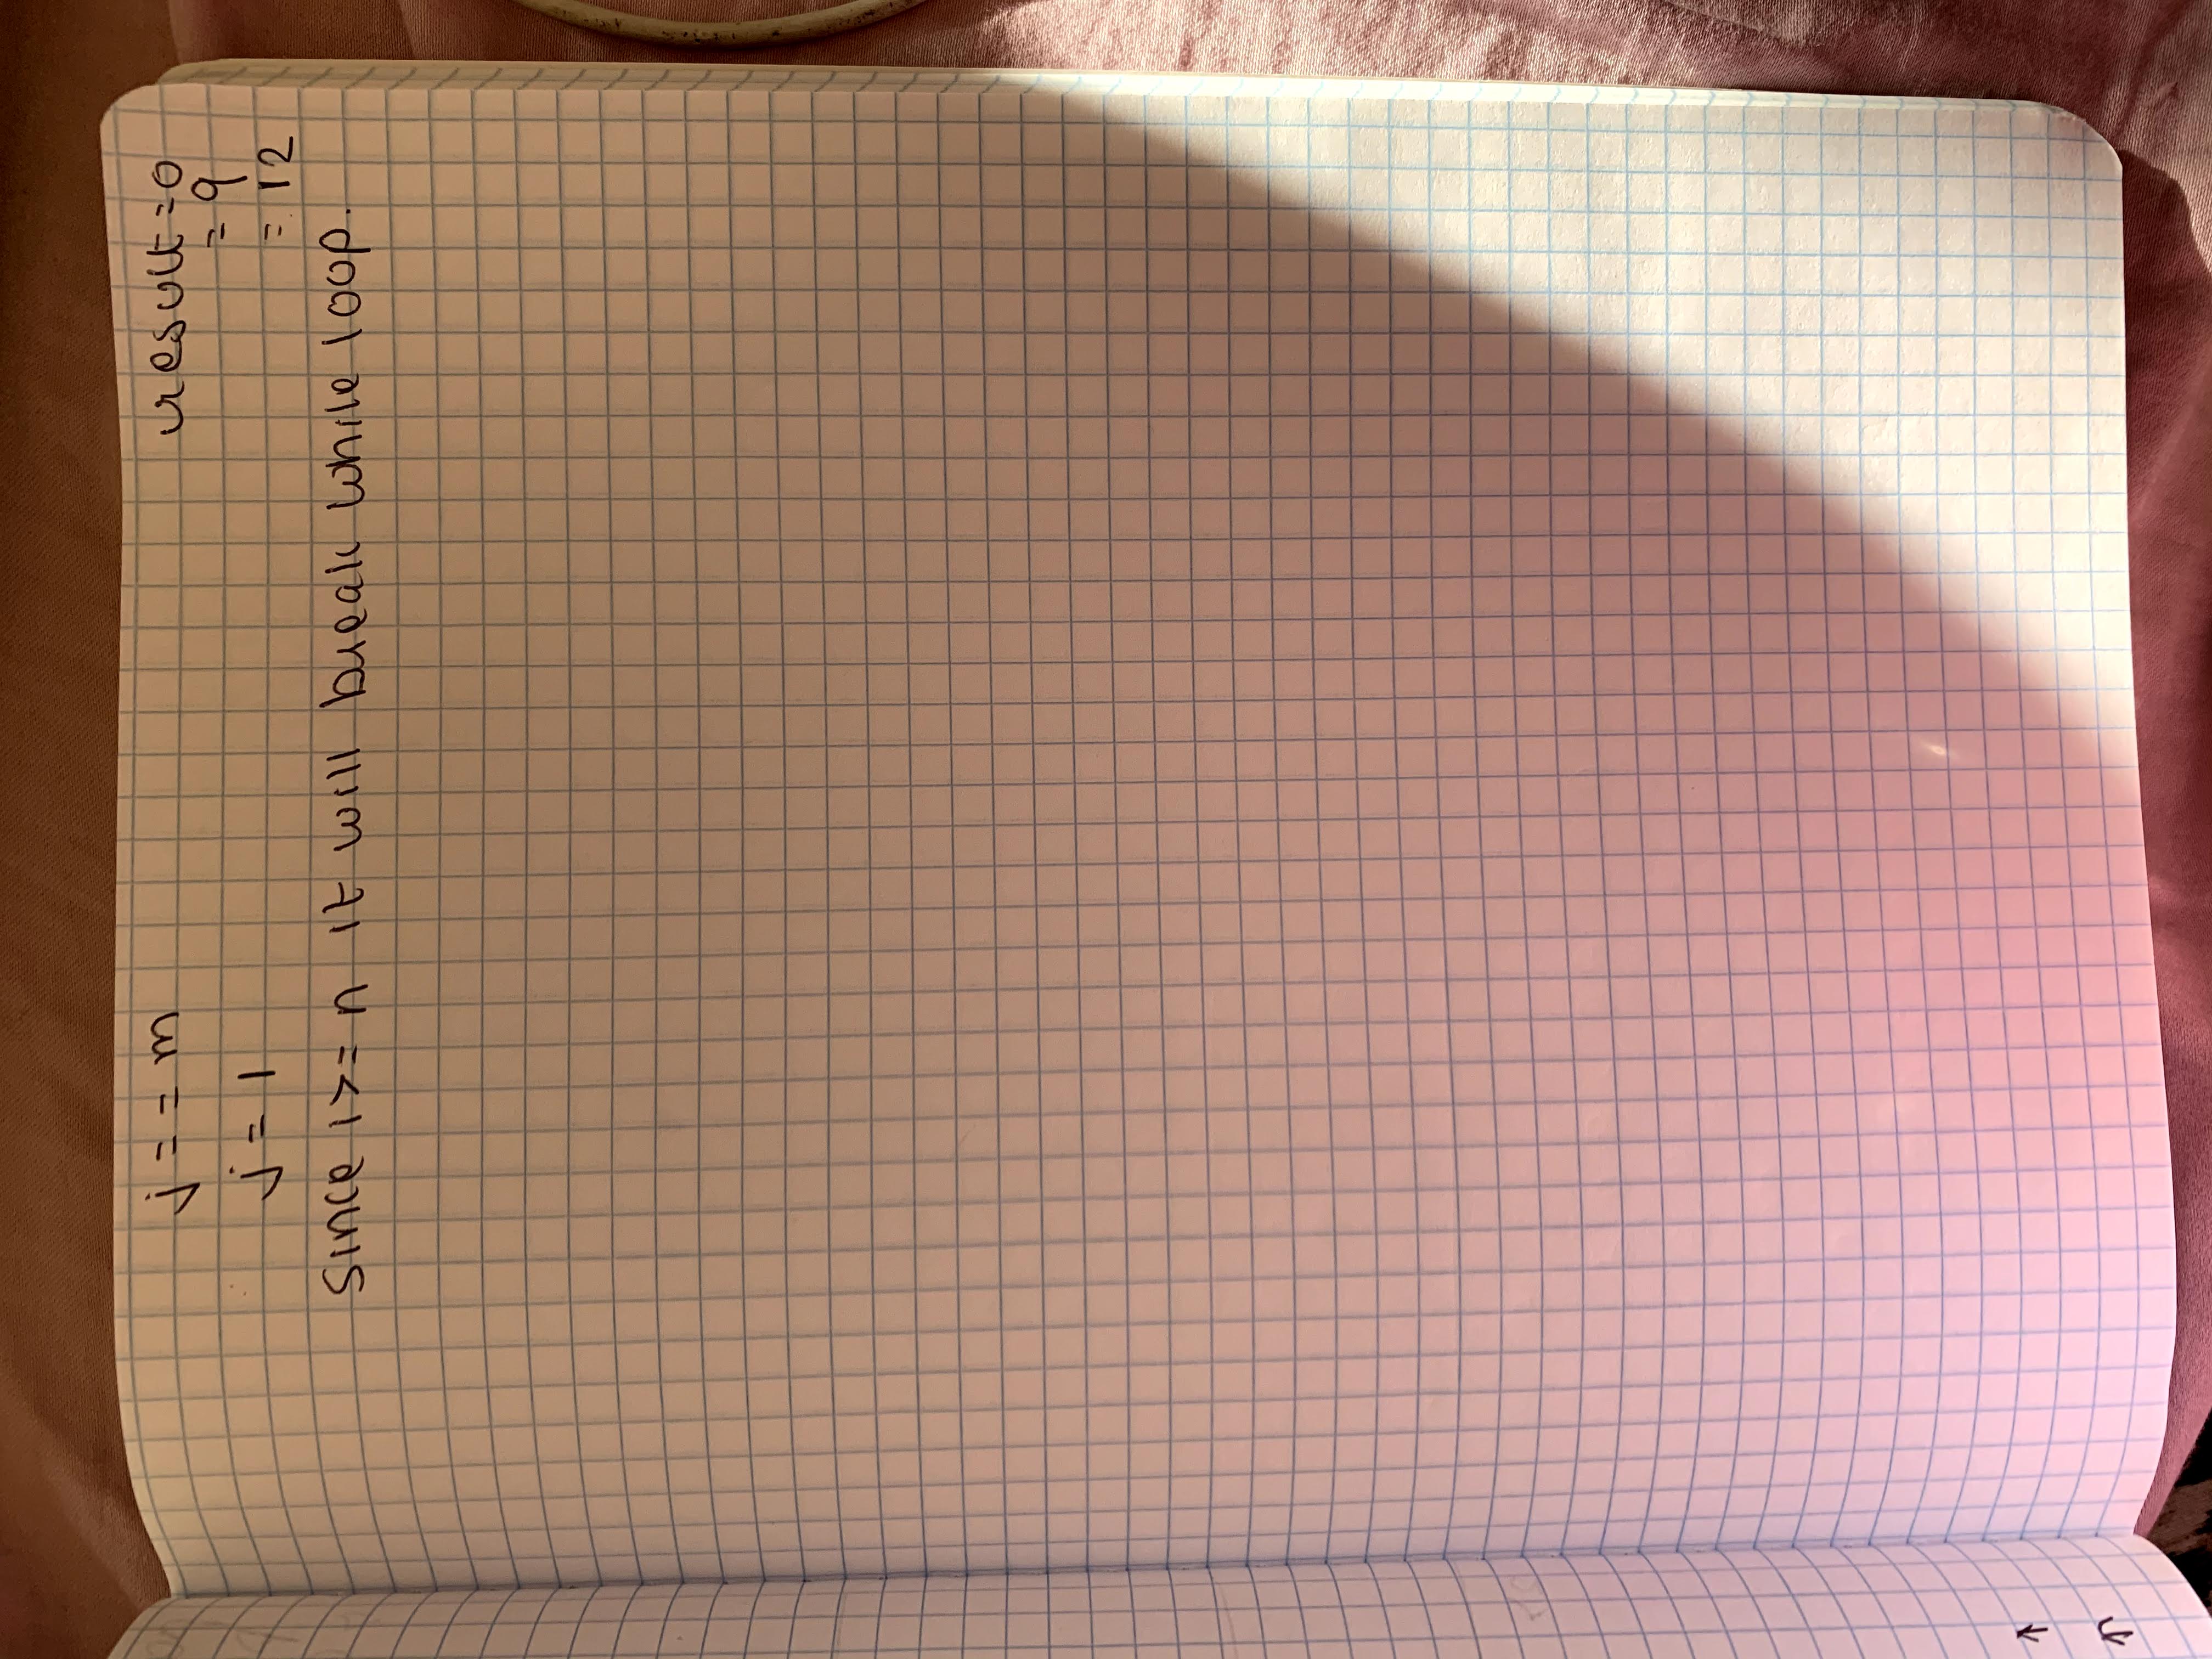 j = = m
result = 0
= 9
j = 1
= 12
since i >= n it will break while loop.